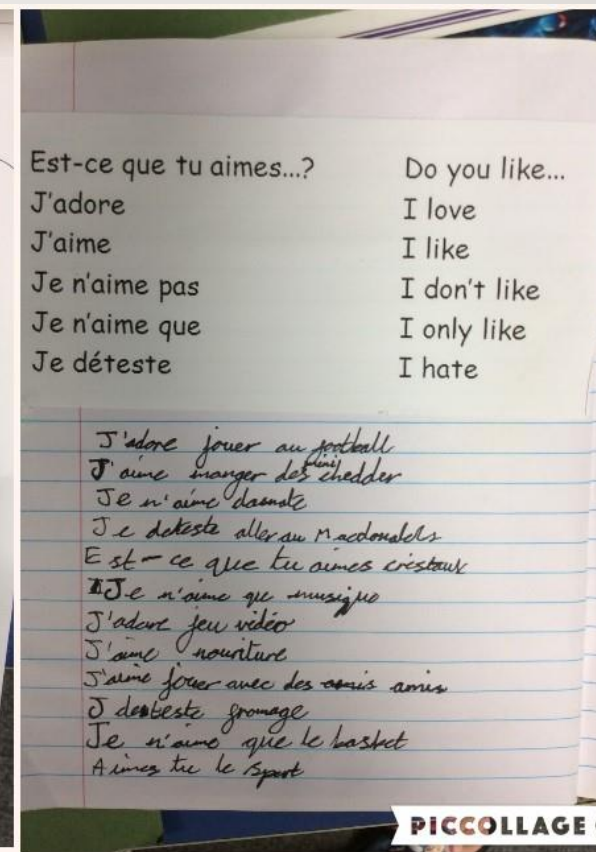 Est-ce que tu aimes...? Do you like...
J'adore I love
J'aime I like
Je n'aime pas I don't like
Je n'aime que I only like
Je déteste I hate
J'adore jouer au football
J'aime manger des mini chedder
Je n'aime
Je deteste aller au Macdonalds
Est-ce que tu aimes cristaux
Je n'aime que musique
J'adore jeu vidéo
J'aime nouriture
J'aime jouer avec des amis amis
J desteste gromage
Je n'aime que le basket
Aimes tu le sport
PICCOLLAGE